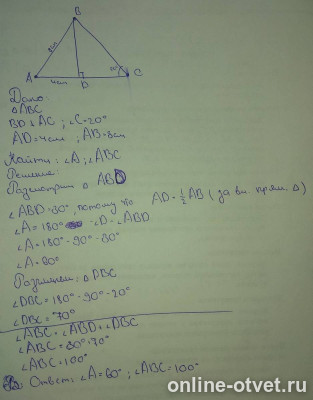 B
8см
20°
A
4см
D
C
Дано:
△ABC
BD ⊥ AC ; ∠C=20°
AD=4см ; AB=8см
Найти: ∠A ; ∠ABC
Решение:
Розмотрим △ ABD
∠ABD=30°, потому что AD=½AB (за вл. прям. △)
∠A=180° - ∠D - ∠ABD
∠A=180° - 90° - 30°
∠A=60°
△DBC
∠DBC=180° - 90° - 20°
∠DBC=70°
∠ABC=∠ABD+∠DBC
∠ABC=30°+70°
∠ABC=100°
Ответ: ∠A=60° ; ∠ABC=100°
online-otvet.ru